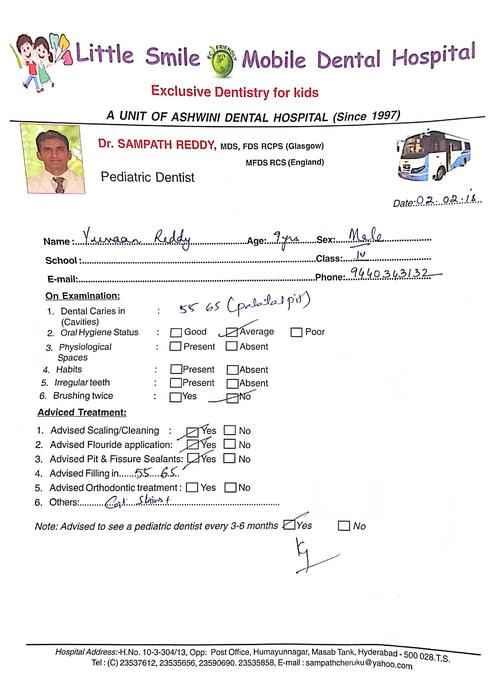 Little Smile ECO FRIENDLY Mobile Dental Hospital
Exclusive Dentistry for kids
A UNIT OF ASHWINI DENTAL HOSPITAL (Since 1997)
Dr. SAMPATH REDDY, MDS, FDS RCPS (Glasgow)
MFDS RCS (England)
Pediatric Dentist
Date: 02.02.16
Name: Yuvaan Reddy Age: 9yrs Sex: Male
School: Class: IV
E-mail: Phone: 9440343132
On Examination:
1. Dental Caries in (Cavities) : 55 65 (palatal pit)
2. Oral Hygiene Status : Good Average Poor
3. Physiological Spaces : Present Absent
4. Habits : Present Absent
5. Irregular teeth : Present Absent
6. Brushing twice : Yes No
Adviced Treatment:
1. Advised Scaling/Cleaning : Yes No
2. Advised Flouride application: Yes No
3. Advised Pit & Fissure Sealants: Yes No
4. Advised Filling in......55 65
5. Advised Orthodontic treatment : Yes No
6. Others:
Note: Advised to see a pediatric dentist every 3-6 months Yes No
Hospital Address:-H.No. 10-3-304/13, Opp: Post Office, Humayunnagar, Masab Tank, Hyderabad - 500 028.T.S.
Tel : (C) 23537612, 23535656, 23590690. 23535858, E-mail : sampathcheruku@yahoo.com